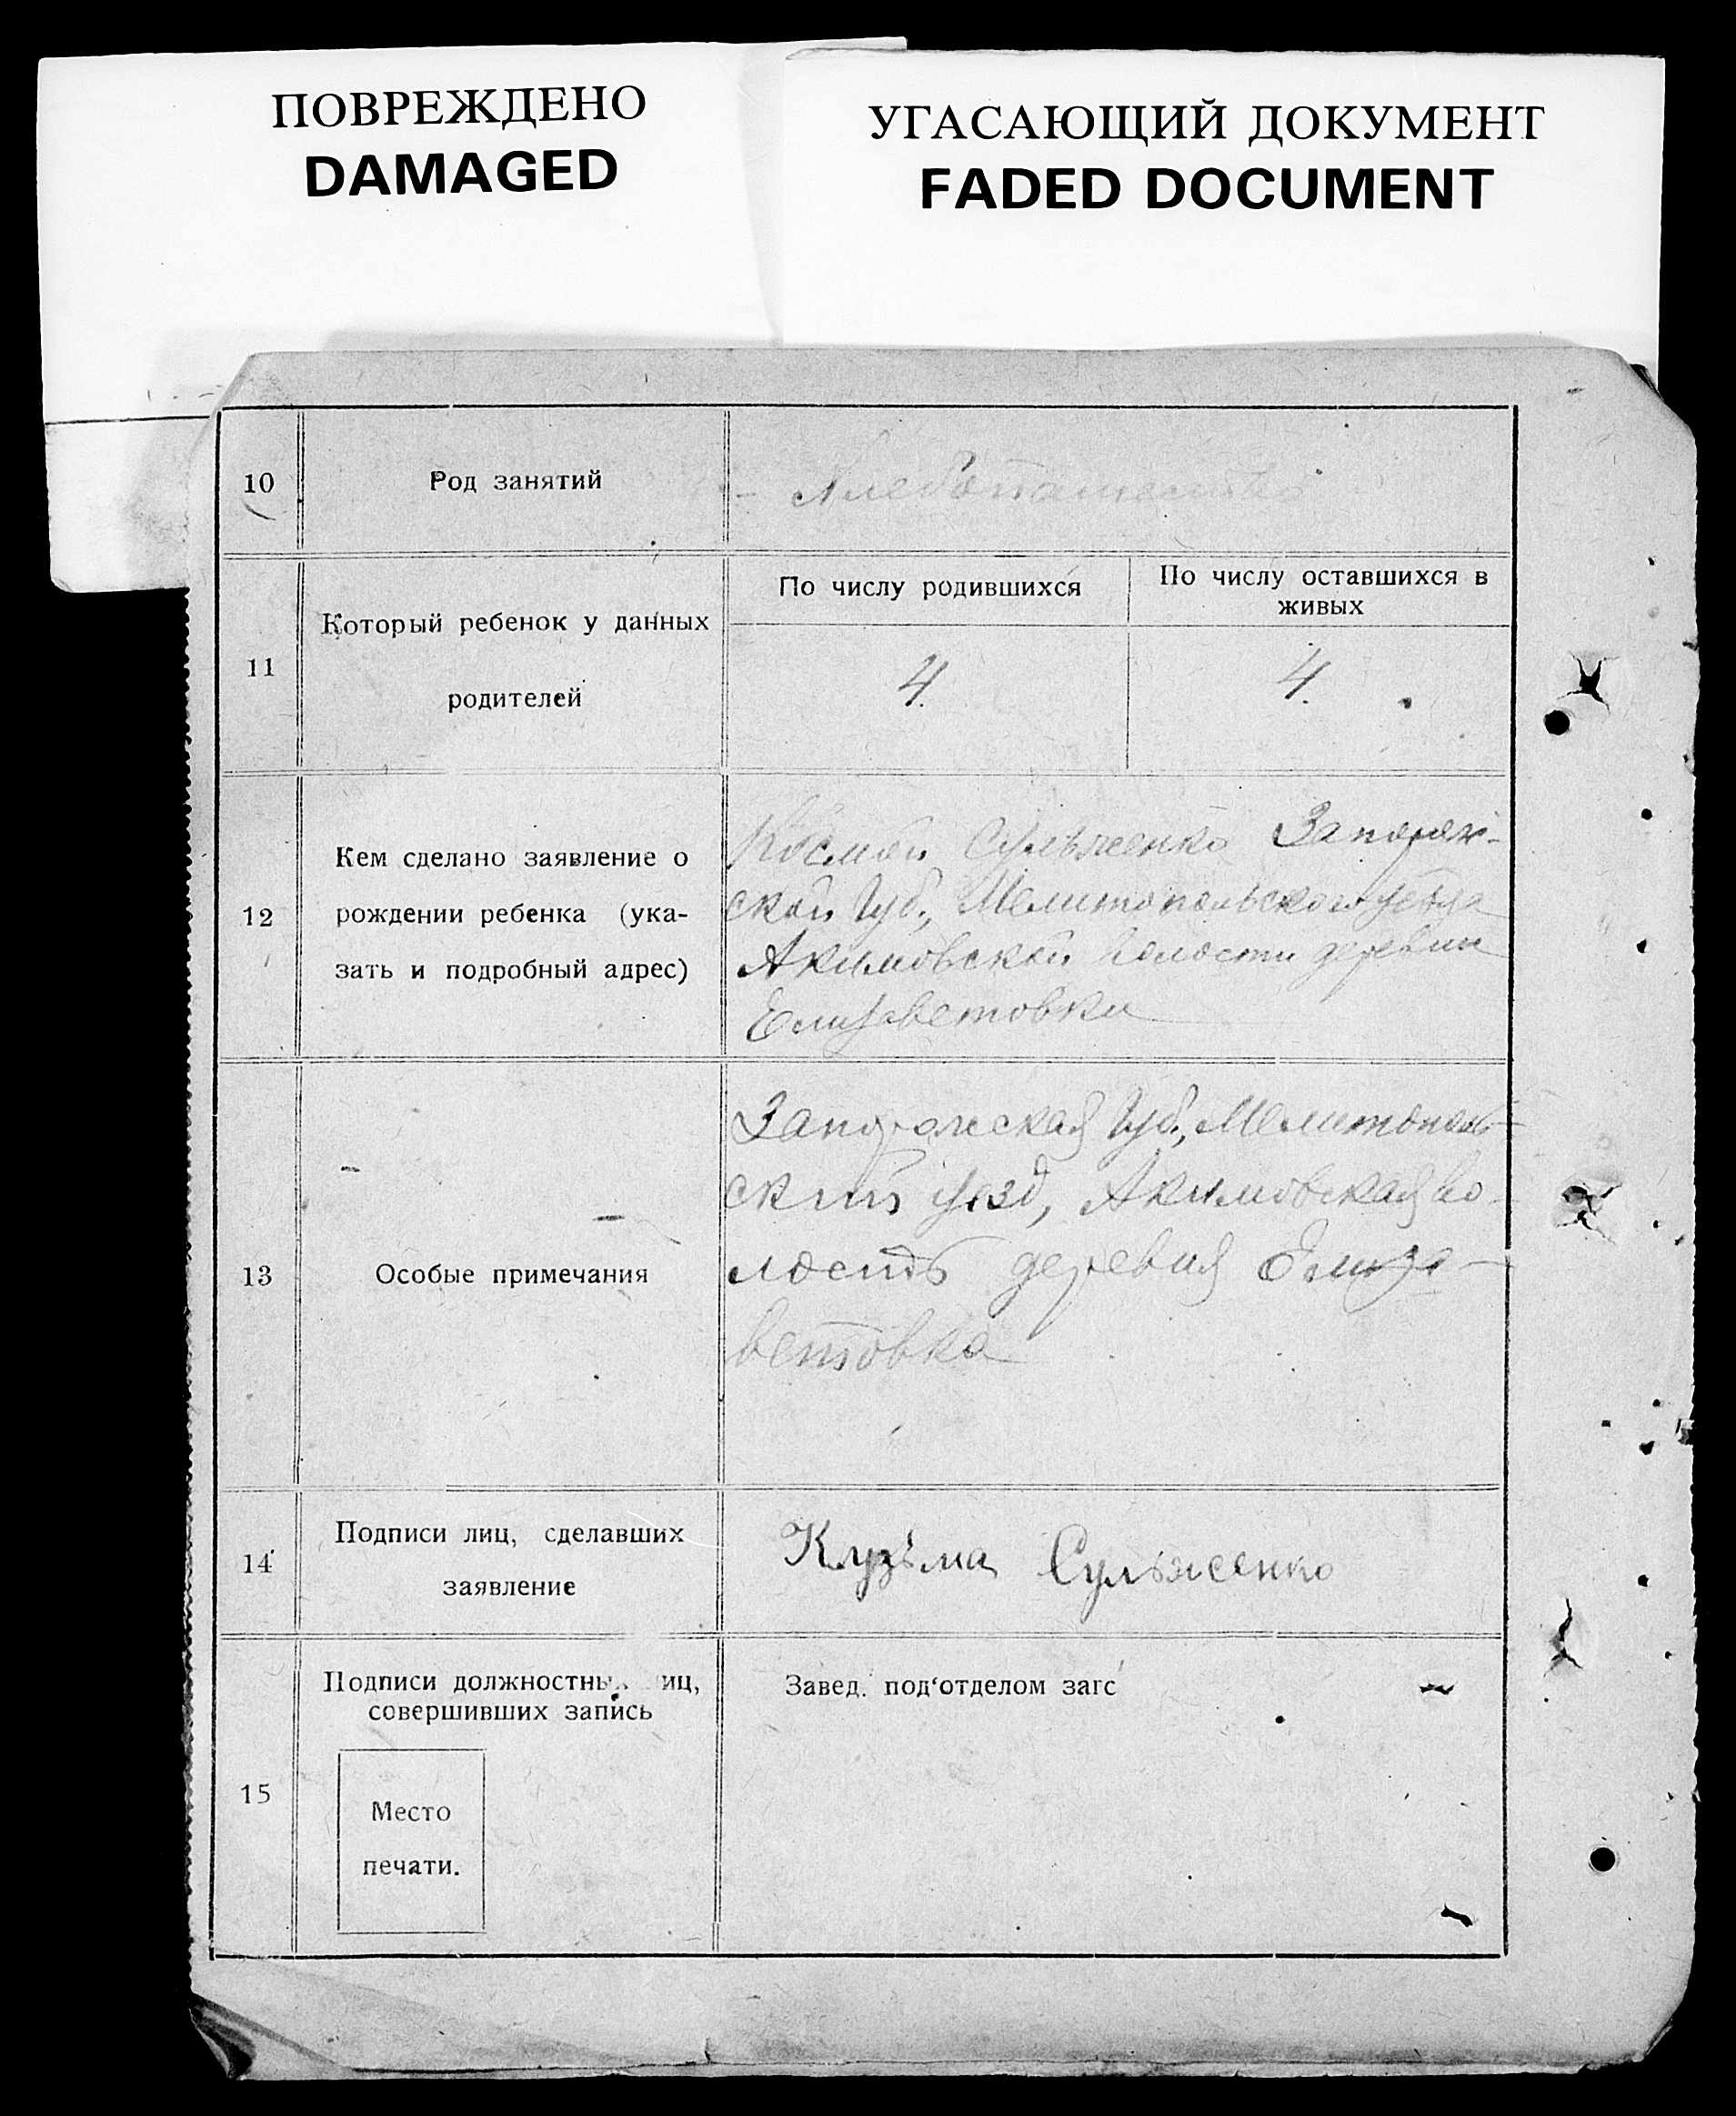 ПОВРЕЖДЕНО
DAMAGED
УГАСАЮЩИЙ ДОКУМЕНТ
FADED DOCUMENT
10
Род занятий
Хлебопашество
11
Который ребенок у данных
родителей
По числу родившихся
4.
По числу оставшихся в
живых
4.
12
Кем сделано заявление о
рождении ребенка (ука-
зать и подробный адрес)
Космой Сульженко Запорож-
ской Губ., Мелитопольского уезда
Акимовской Волости деревни
Елизаветовки
13
Особые примечания
Запорожская Губ., Мелитополь-
ский уезд, Акимовская во-
лость деревня Елиза-
ветовка
14
Подписи лиц, сделавших
заявление
Кузьма Сульженко
15
Подписи должностных лиц,
совершивших запись
Место
печати.
Завед. под'отделом загс